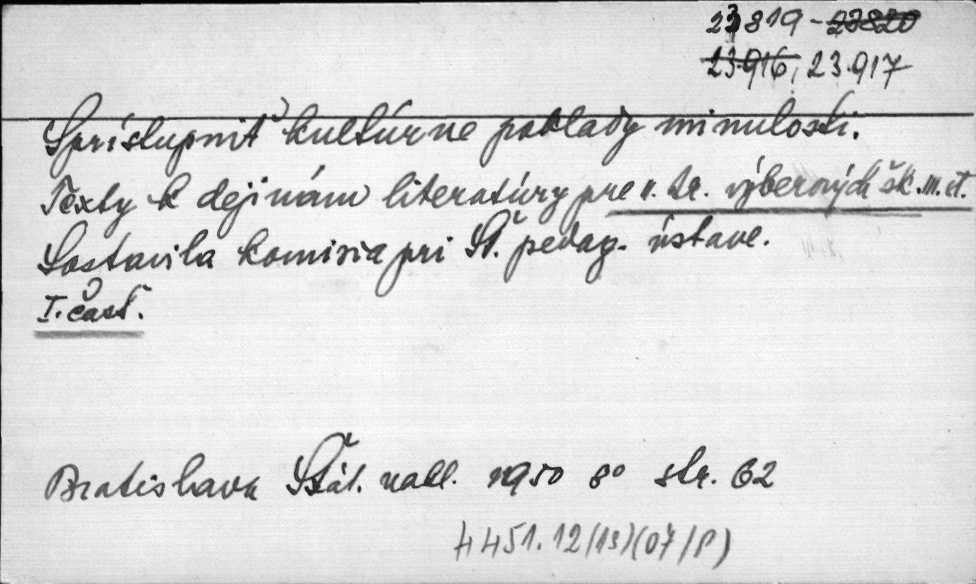 23819 - 23820
23.916, 23.917
Sprístupniť kultúrne poklady minulosti.
Texty k dejinám literatúry pre v. tr. výberových šk. III. st.
Sostavila komisia pri Št. pedag. ústave.
I. časť.
Bratislava Štát. nakl. 1950 8° str. 62
4451.12/13)(07/P)